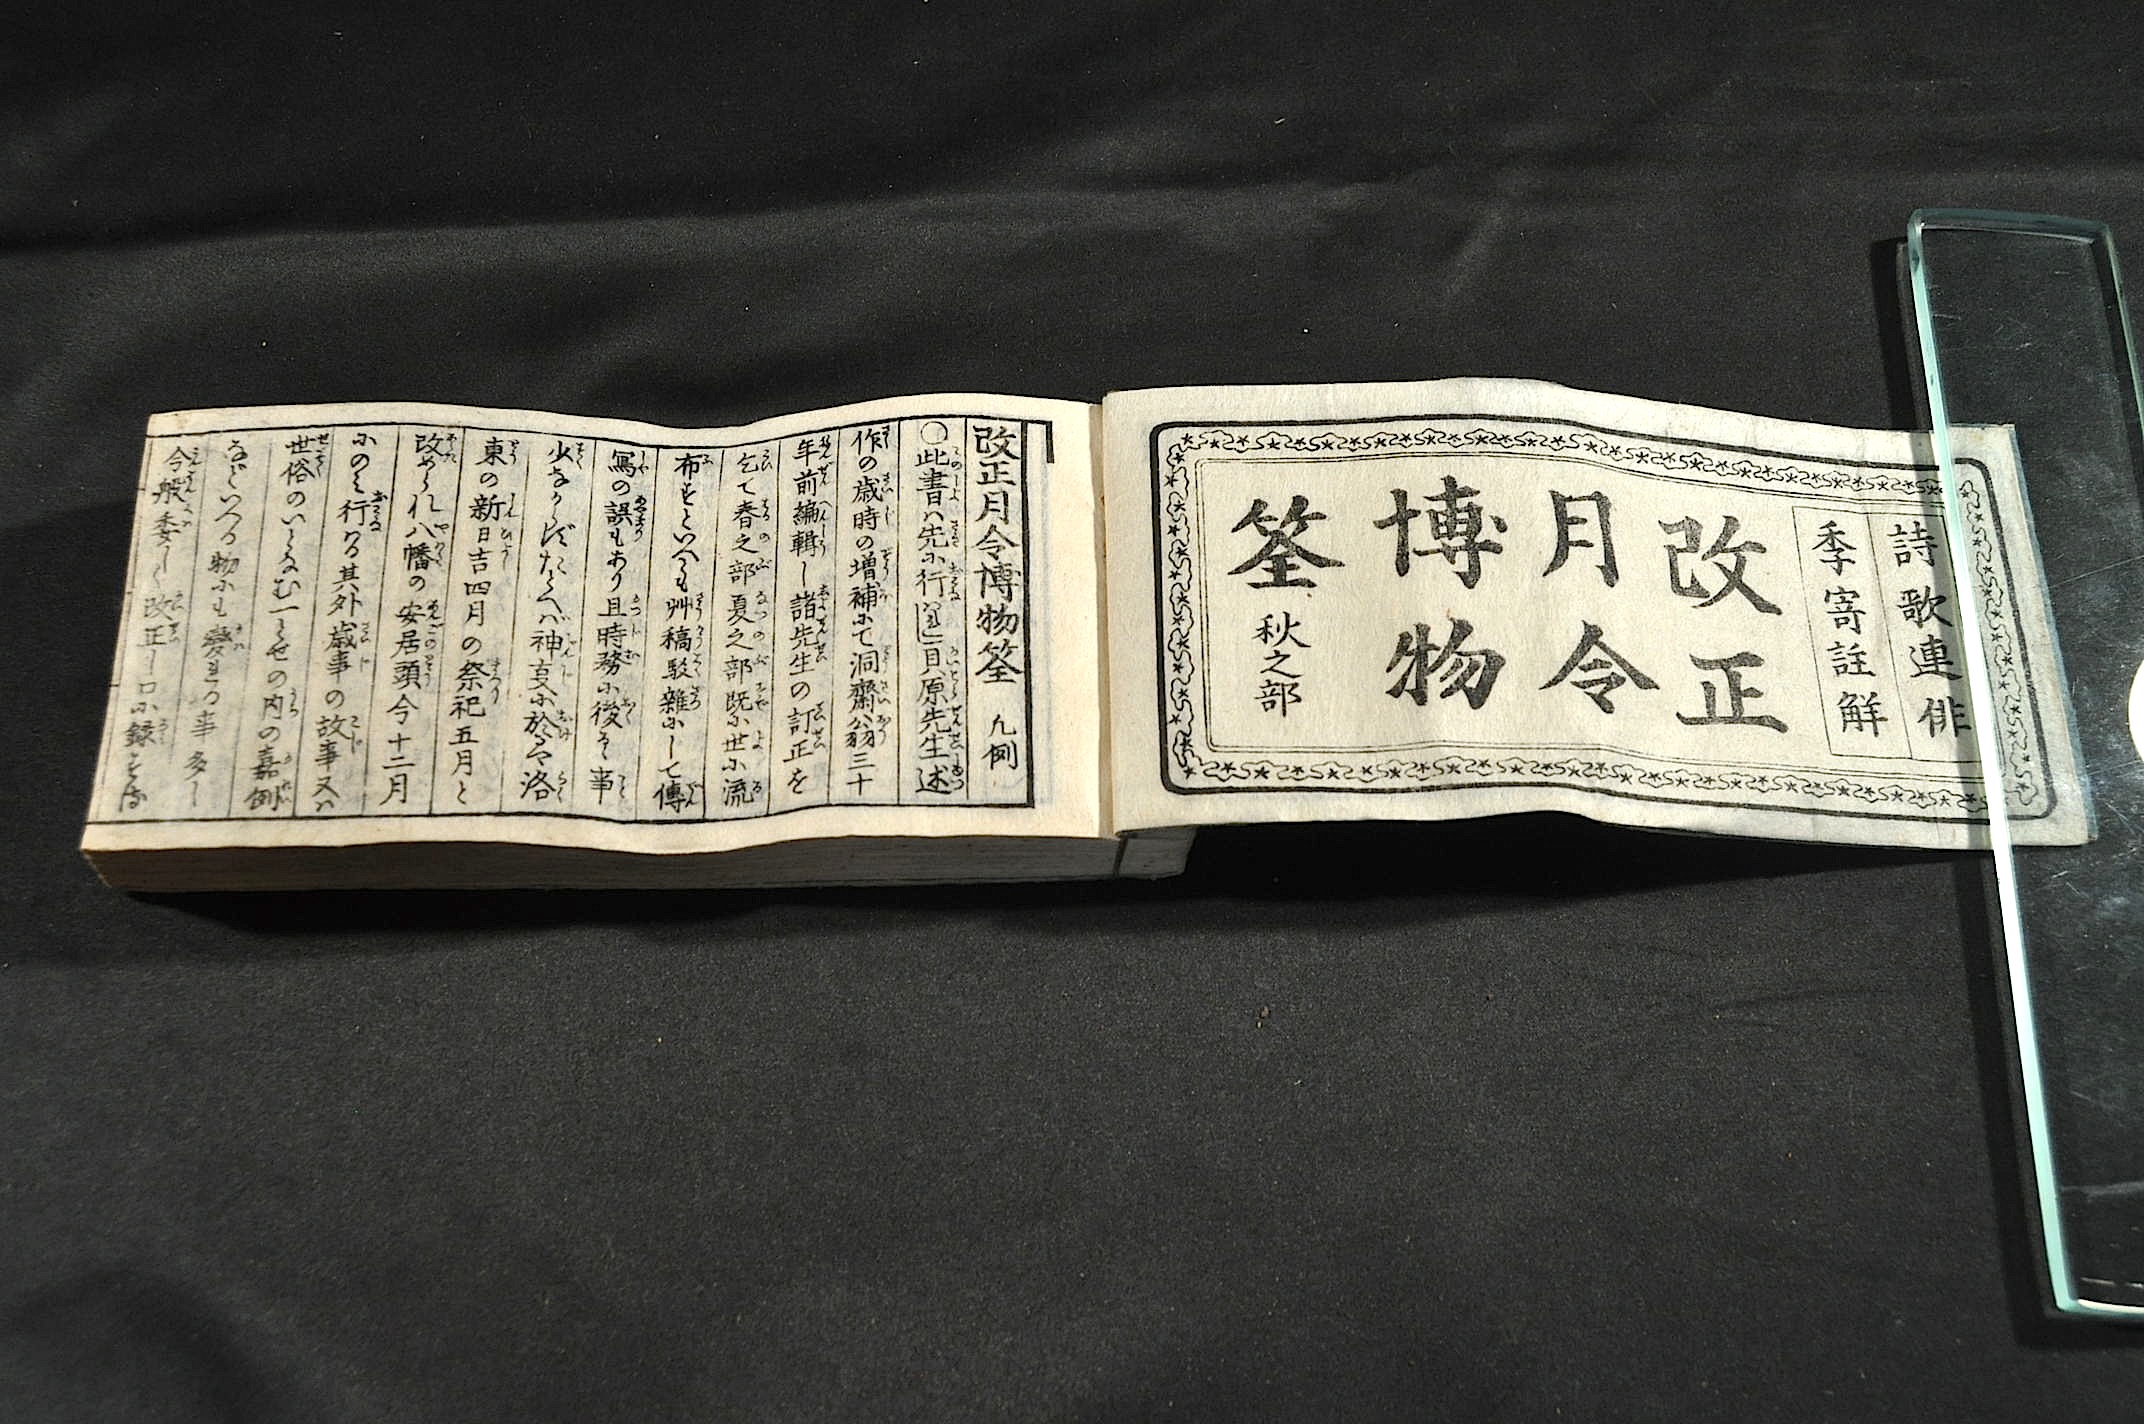 詩歌連俳
季寄註解
改正
月令
博物
筌 秋之部
改正月令博物筌 凡例
○此書ハ先に行るゝ貝原先生述
作の歳時の増補にて洞齋翁三十
年前編輯し諸先生の訂正を
乞て春之部夏之部既に世に流
布すといへども艸稿駁雜にして傳
寫の誤もあり且時務に後るゝ事
少なからずたとへバ神支に於るや洛
東の新日吉四月の祭祀五月と
改められ八幡の安居頭今十二月
にのミ行ハる其外歳事の故事又ハ
世俗のいとなむ一とせの内の嘉例
などいへる物にも變れる事多し
今般委しく改正し口に録する